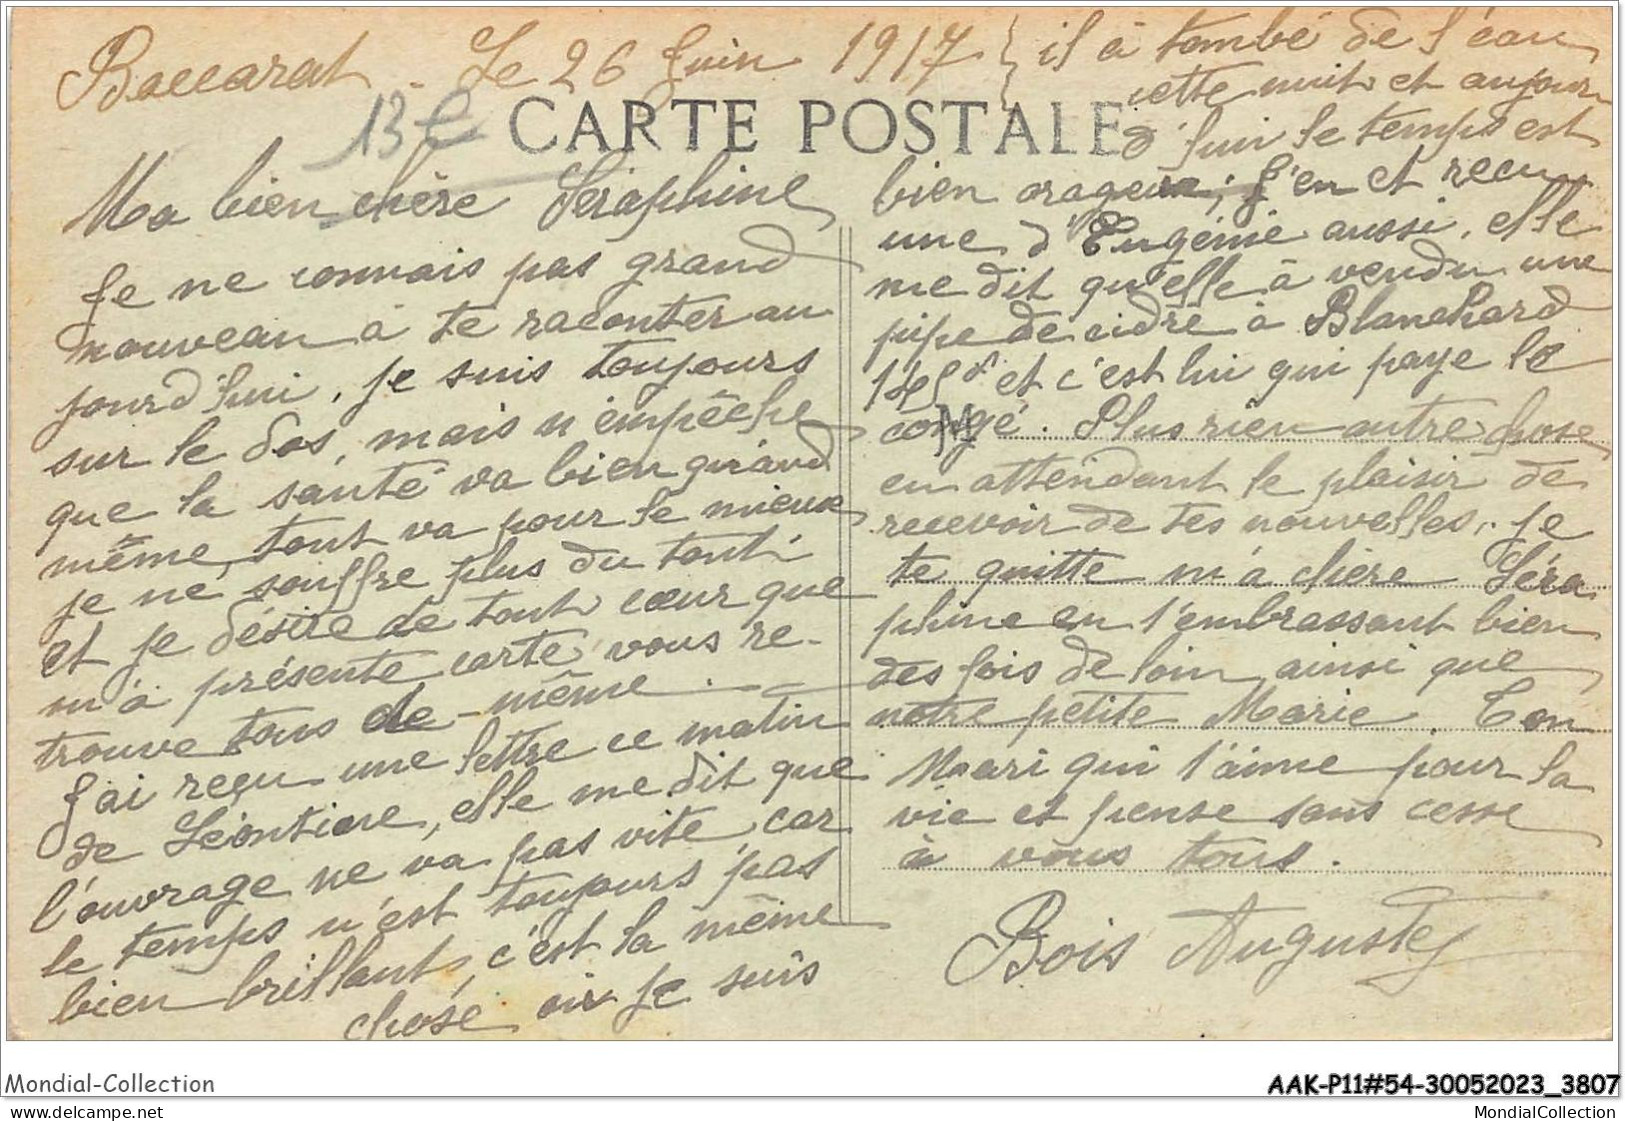 Baccarat - Le 26 Juin 1917
13 €
CARTE POSTALE
Ma bien chère Séraphine
Je ne connais pas grand
nouveau à te raconter au
jourd'hui, je suis toujours
sur le dos, mais n'empêche
que la santé va bien quand
même, tout va pour le mieux
je ne souffre plus du tout
et je désire de tout cœur que
m'a présente carte vous re-
trouve tous de-même.
J'ai reçu une lettre ce matin
de Léontine, elle me dit que
l'ouvrage ne va pas vite car
le temps n'est toujours pas
bien brillant, c'est la même
chose où je suis
il à tombé de l'eau
cette nuit et aujour
d'hui le temps est
bien orageux; J'en et recu
une d'Eugénie aussi, elle
me dit qu'elle à vendu une
pipe de cidre à Blanchard
et c'est lui qui paye le
congé. Plus rien autre chose
en attendant le plaisir de
recevoir de tes nouvelles, je
te quitte m'a chère Séra
phine en t'embrassant bien
des fois de loin ainsi que
notre petite Marie. Ton
Mari qui t'aime pour la
vie et pense sans cesse
à vous tous.
Bois Auguste
Mondial-Collection
www.delcampe.net
AAK-P11#54-30052023_3807
MondialCollection